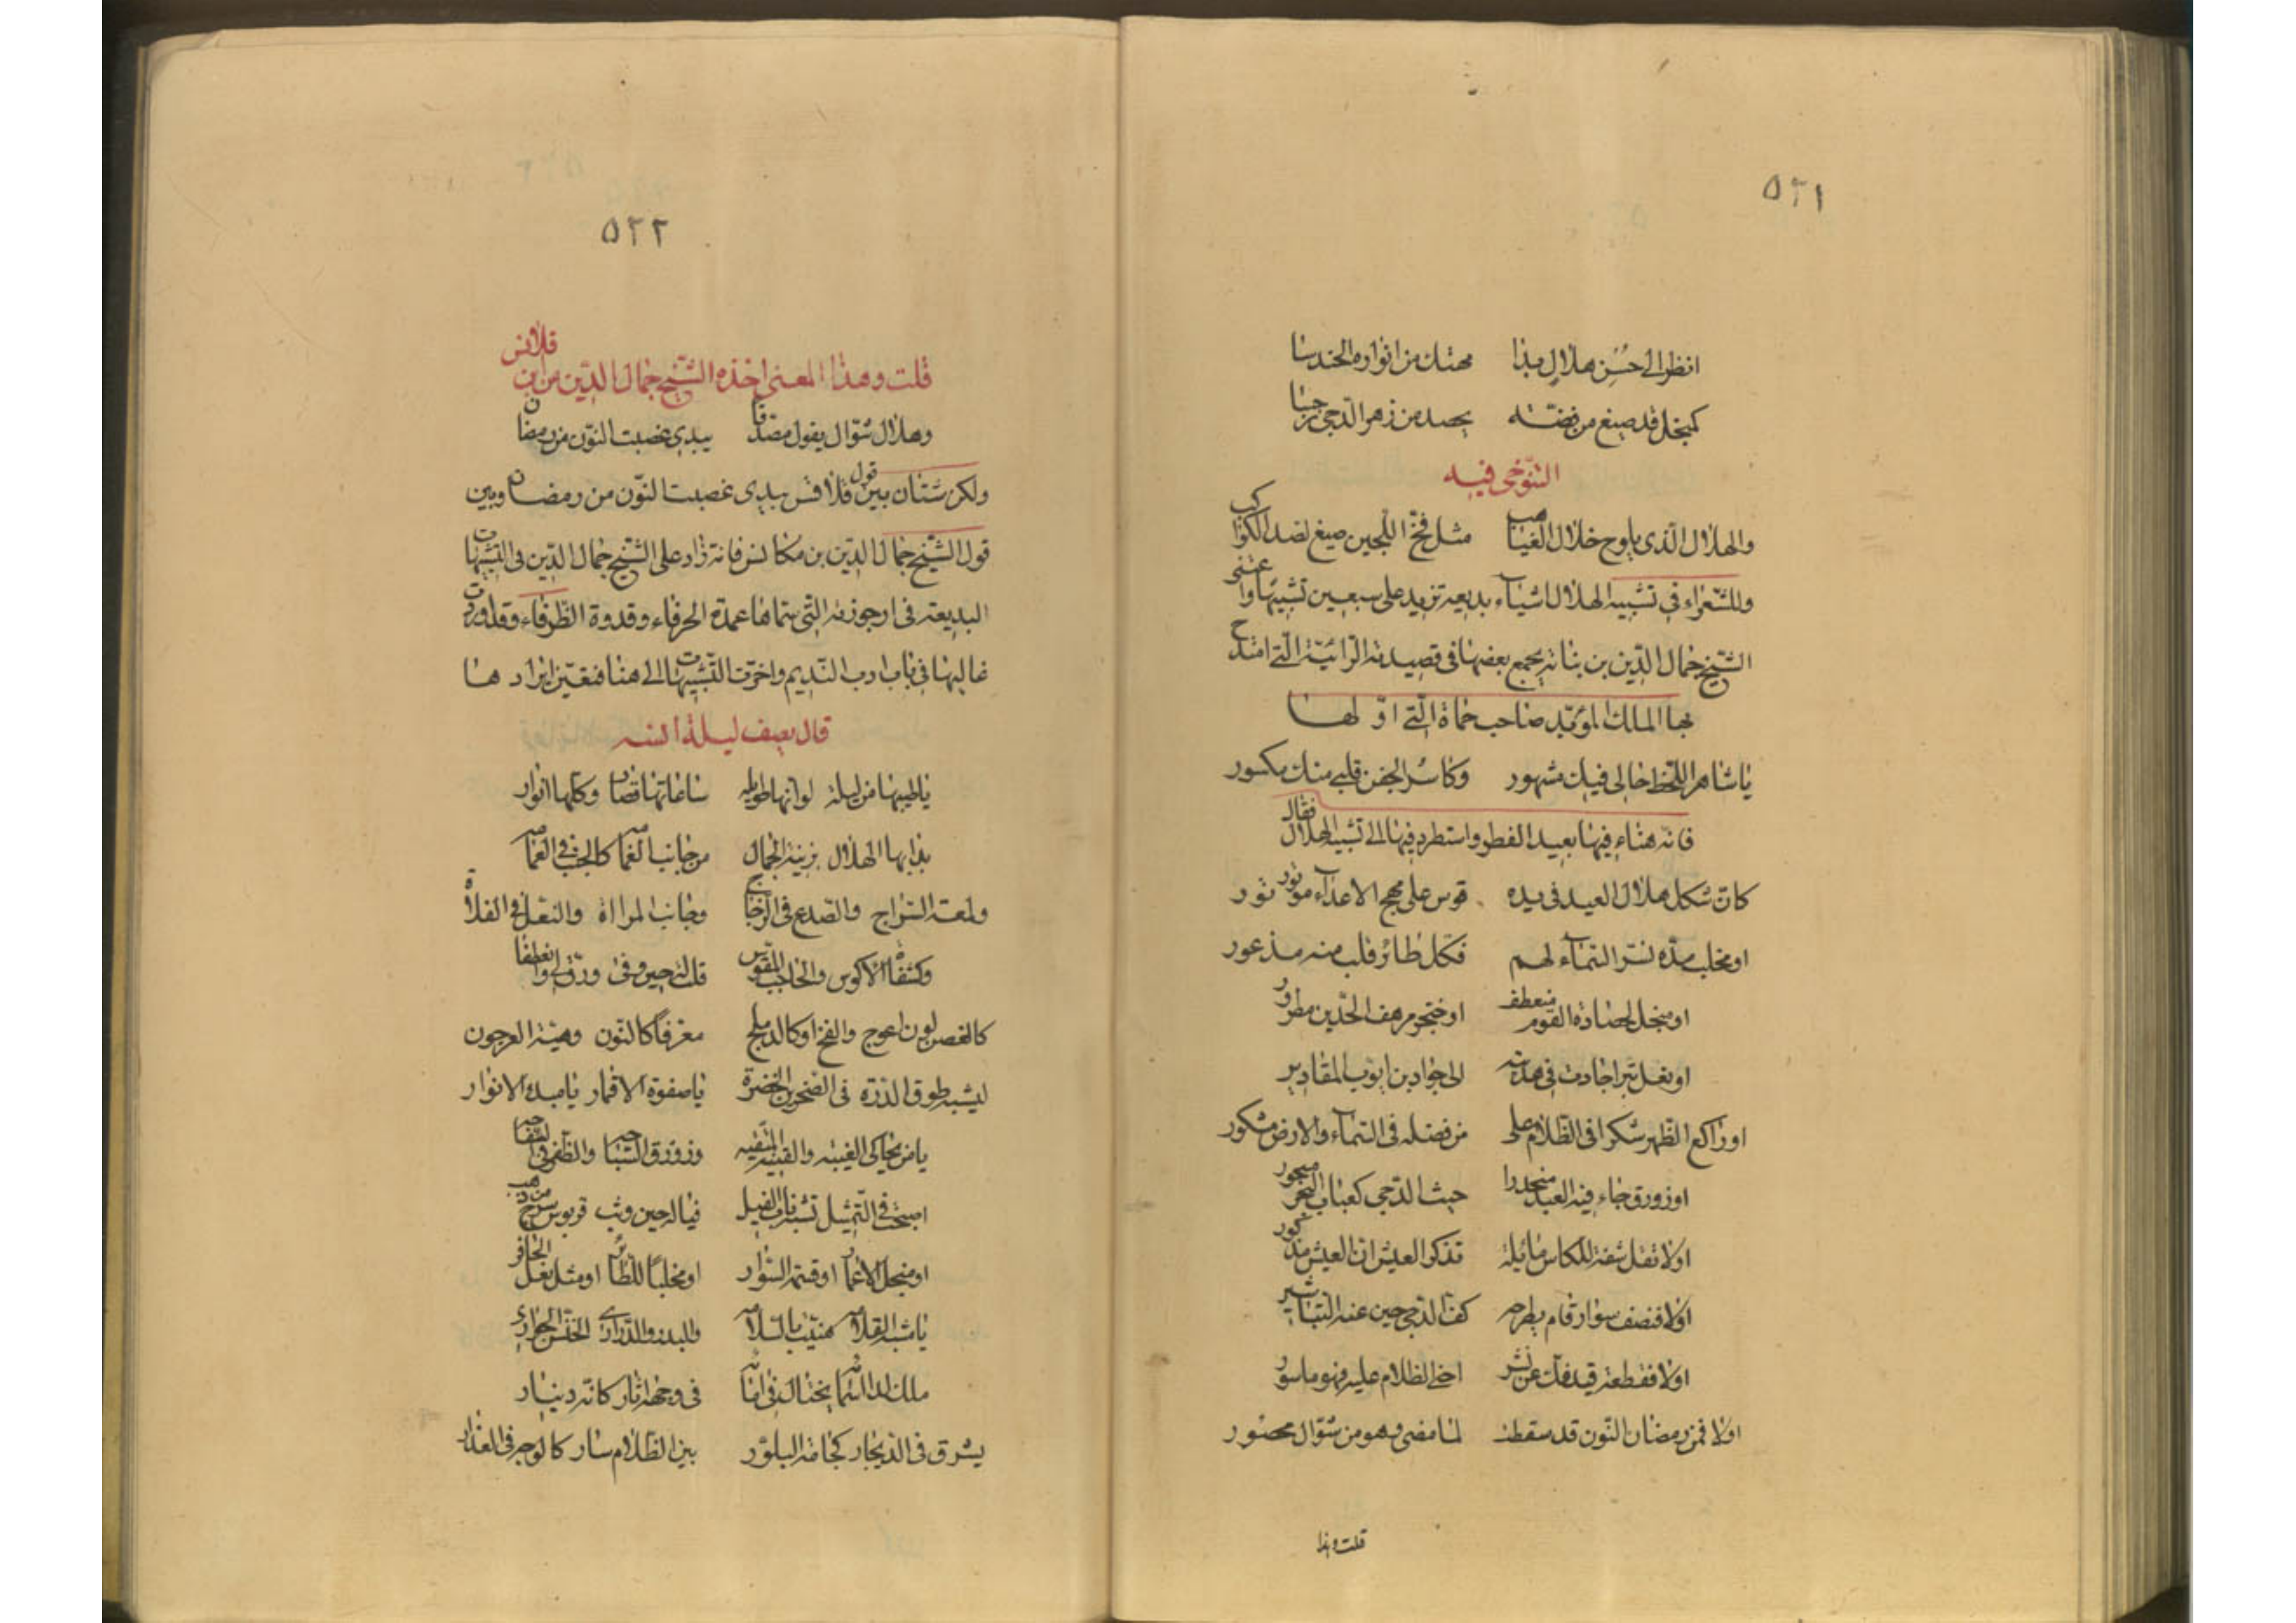 ٥٢١
انظر الى حسن هلال بدا مهتك من انواره الحندسا
كمنجل قد صيغ من فضة يحصد من زهر الدجى نرجسا
التنوخى فيه
والهلال الذى يلوح خلال الغياهب مثل فخ اللجين صيغ لصيد الكواكب
وللشعراء فى تشبيه الهلال اشياء بديعة تزيد على سبعين تشبيها واعتنى
الشيخ جمال الدين بن نباته بجمع بعضها فى قصيدته الرائية التى امتدح
بها الملك المؤيد صاحب حماة التى اولها
يا شاهر اللحظ حالى فيك مشهور وكاسر الجفن قلبى منك مكسور
فانه هناء فيها بعيد الفطر واستطرد فيها الى تشبيه الهلال فقال
كان شكل هلال العيد فى يده قوس على مهج الاعداء موتور
او مخلب مده نسر السماء لهم فكل طائر قلب منه مذعور
او منجل لحصاد القوم منعطف او خنجر مرهف الحدين مطرور
او نعل تبر اجادت فى هديته الى جواد بن ايوب المقادير
او راكع الظهر شكرا فى الظلام على من فضله فى السماء والارض مشكور
او زورق جاء فيه العيد منحدرا حيث الدجى كعباب البحر مسجور
اولا تقل شفة للكاس مائلة تذكر العيش ان العيش مذكور
اولا فنصف سوار قام يطرحه كف الدجى حين عنه التباشير
اولا فقطعة قيد فك عن بشر اخنى الظلام عليه فهو ماسور
اولا فمن رمضان النون قد سقطت لما مضى وهو من شوال محصور
قلت وهذا
٥٢٢
قلت وهذا المعنى اخذه الشيخ جمال الدين من ابن قلاقس
وهلال شوال يقول مصدقا بيدى غصبت النون من رمضان
ولكن شتان بين قول قلاقس بيدى غصبت النون من رمضان وبين
قول الشيخ جمال الدين بن مكانس فانه زاد على الشيخ جمال الدين فى التشبيهات
البديعة فى ارجوزته التى سماها عمدة الحرفاء وقدوة الظرفاء وقد اوردت
غالبها فى باب ادب النديم واخرت التشبيهات الى هنا فتعين ايرادها
قال يصف ليلة انسه
يا طيبها من ليلة لو انها طويله ساعاتها قصار وكلها انوار
بدا بها الهلال يزينه الجمال من جانب الغمام كالحب فى الغمام
ولمعة السراج والصدع فى الزجاج وجانب المرااة والنعل فى الفلاة
وكشفاه الاكوس والحاجب المقوس قلت لجين وفى ورق لى وانعطفا
كالغصن لون اعوج والفخ او كالدملج معرقا كالنون وهيئة العرجون
ليشبه طوق الدره فى الخضرة يا صفوة الاقمار يا مبدء الانوار
يا من يحاكى الغيبه والقبه وزورق السباحه والظفر فى التفاحه
اصبحت فى التمثيل تشبه ناب الفيل فيا له حين وثب قربوس سرج من ذهب
او منجل الاعمار او قسمة السوار او مخلبا للطائر او مثل نعل الحافر
يا شبه القلامه هنيت بالسلامه والبدر والدرارى الخنس الجوارى
ملك السما يختال فى اما فى وجهه اثار كانه دينار
يشرق فى الديجار كجامة البلور بين الظلام سار كالوجه فى العذار